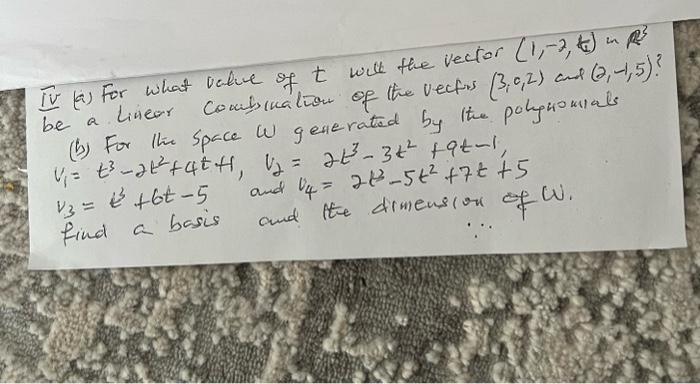 IV (a) For what value of t will the vector (1,-2,t) in R³
be a linear combination of the vectors (3,0,2) and (2,-1,5)?
(b) For the space W generated by the polynomials
V₁ = t³-2t²+4t+1, V₂ = 2t³-3t²+9t-1,
V₃ = t³+6t-5 and V₄ = 2t³-5t²+7t+5
find a basis and the dimension of W.
...